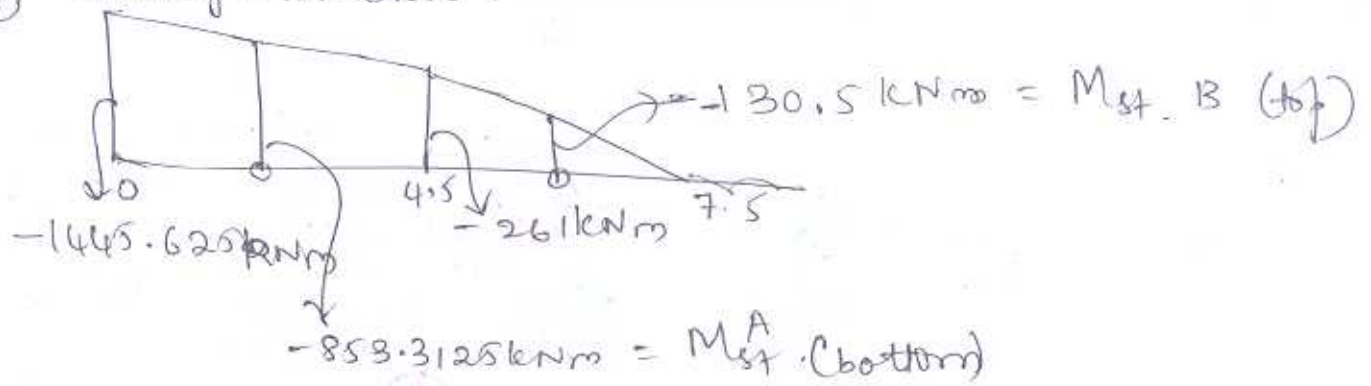 -130.5 kNm = Mst. B (top)
0
4.5
7.5
-261kNm
-1445.625kNm
-853.3125kNm = MstA. (bottom)